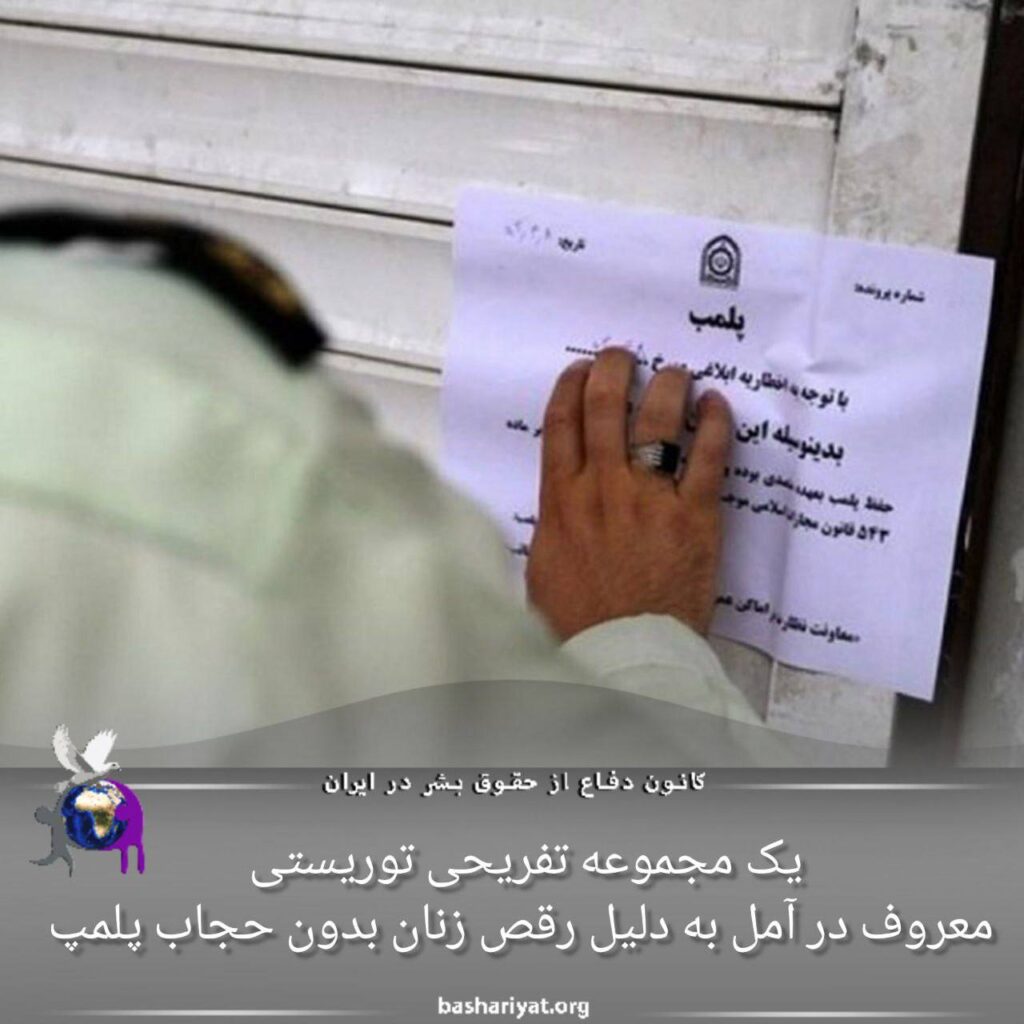 شماره پرونده:
تاریخ:
پلمب
با توجه به اخطاریه ابلاغی
بدینوسیله این
حفظ پلمب بعهده متصدی بوده و
ماده
۵۴۳ قانون مجازات اسلامی
معاونت نظارت بر اماکن
کانون دفاع از حقوق بشر در ایران
یک مجموعه تفریحی توریستی
معروف در آمل به دلیل رقص زنان بدون حجاب پلمپ
bashariyat.org